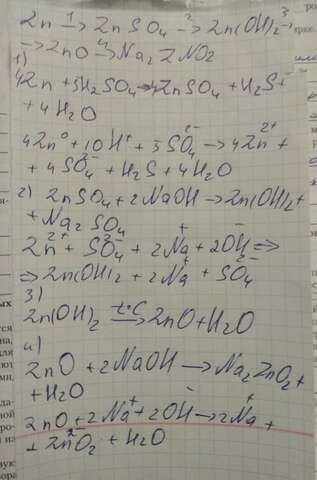 Zn 1→ ZnSO4 2→ Zn(OH)2 3→
→ ZnO 4→ Na2ZNO2
1)
4Zn + 5H2SO4 → 4ZnSO4 + H2S +
+ 4H2O
4Zn⁰ + 10H⁺ + 5SO4²⁻ → 4Zn²⁺ +
+ 4SO4²⁻ + H2S + 4H2O
2) ZnSO4 + 2NaOH → Zn(OH)2 +
+ Na2SO4
Zn²⁺ + SO4²⁻ + 2Na⁺ + 2OH⁻ =>
=> Zn(OH)2 + 2Na⁺ + SO4²⁻
3)
Zn(OH)2 t°C→ ZnO + H2O
4)
ZnO + 2NaOH → Na2ZnO2 +
+ H2O
ZnO + 2Na⁺ + 2OH⁻ → 2Na⁺ +
+ ZnO2²⁻ + H2O